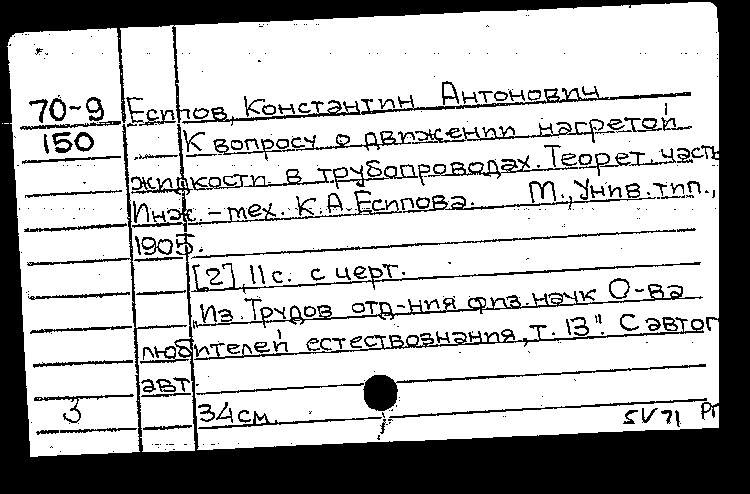 70-9 Есипов, Константин Антонович
150 К вопросу о движении нагретой
жидкости в трубопроводах. Теорет. часть
Инж.-мех. К.А.Есипова. М., Унив. тип.,
1905.
[2], 11 с. с черт.
"Из. Трудов отд-ния физ. наук О-ва
любителей естествознания, т. 13". С автог
авт.
3 34 см. 5V71 Рг